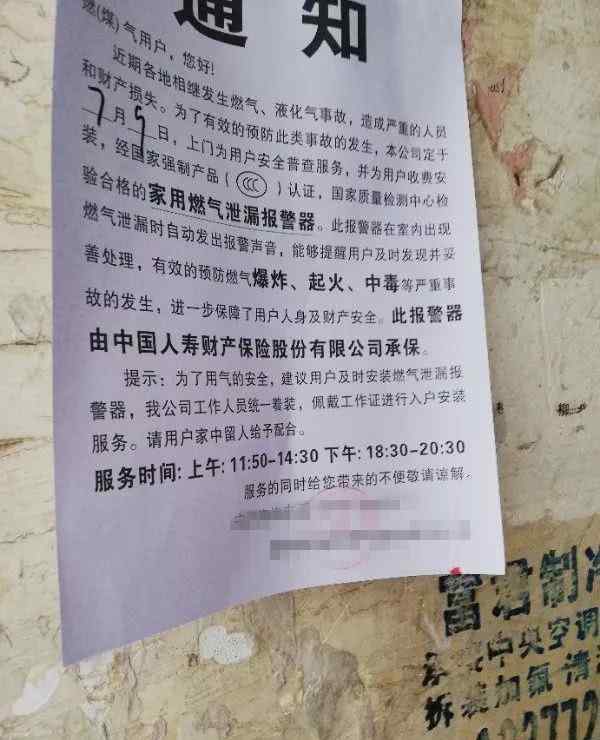 通知
燃(煤)气用户，您好!
近期各地相继发生燃气、液化气事故，造成严重的人员
和财产损失。为了有效的预防此类事故的发生，本公司定于
7月9日，上门为用户安全普查服务，并为用户收费安
装，经国家强制产品（CCC）认证，国家质量检测中心检
验合格的家用燃气泄漏报警器。此报警器在室内出现
燃气泄漏时自动发出报警声音，能够提醒用户及时发现并妥
善处理，有效的预防燃气爆炸、起火、中毒等严重事
故的发生，进一步保障了用户人身及财产安全。此报警器
由中国人寿财产保险股份有限公司承保。
提示：为了用气的安全，建议用户及时安装燃气泄漏报
警器，我公司工作人员统一着装，佩戴工作证进行入户安装
服务。请用户家中留人给予配合。
服务时间: 上午: 11:50-14:30 下午: 18:30-20:30
服务的同时给您带来的不便敬请谅解。
雷君制冷
中央空调
拆装加氟·清